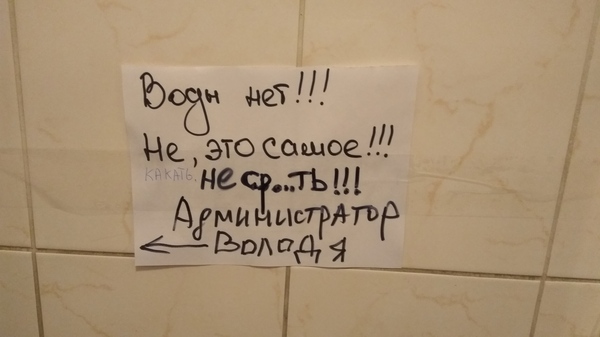 Воды нет!!!
Не, это самое!!!
КАКАТЬ. не ср...ть!!!
Администратор
← Володя